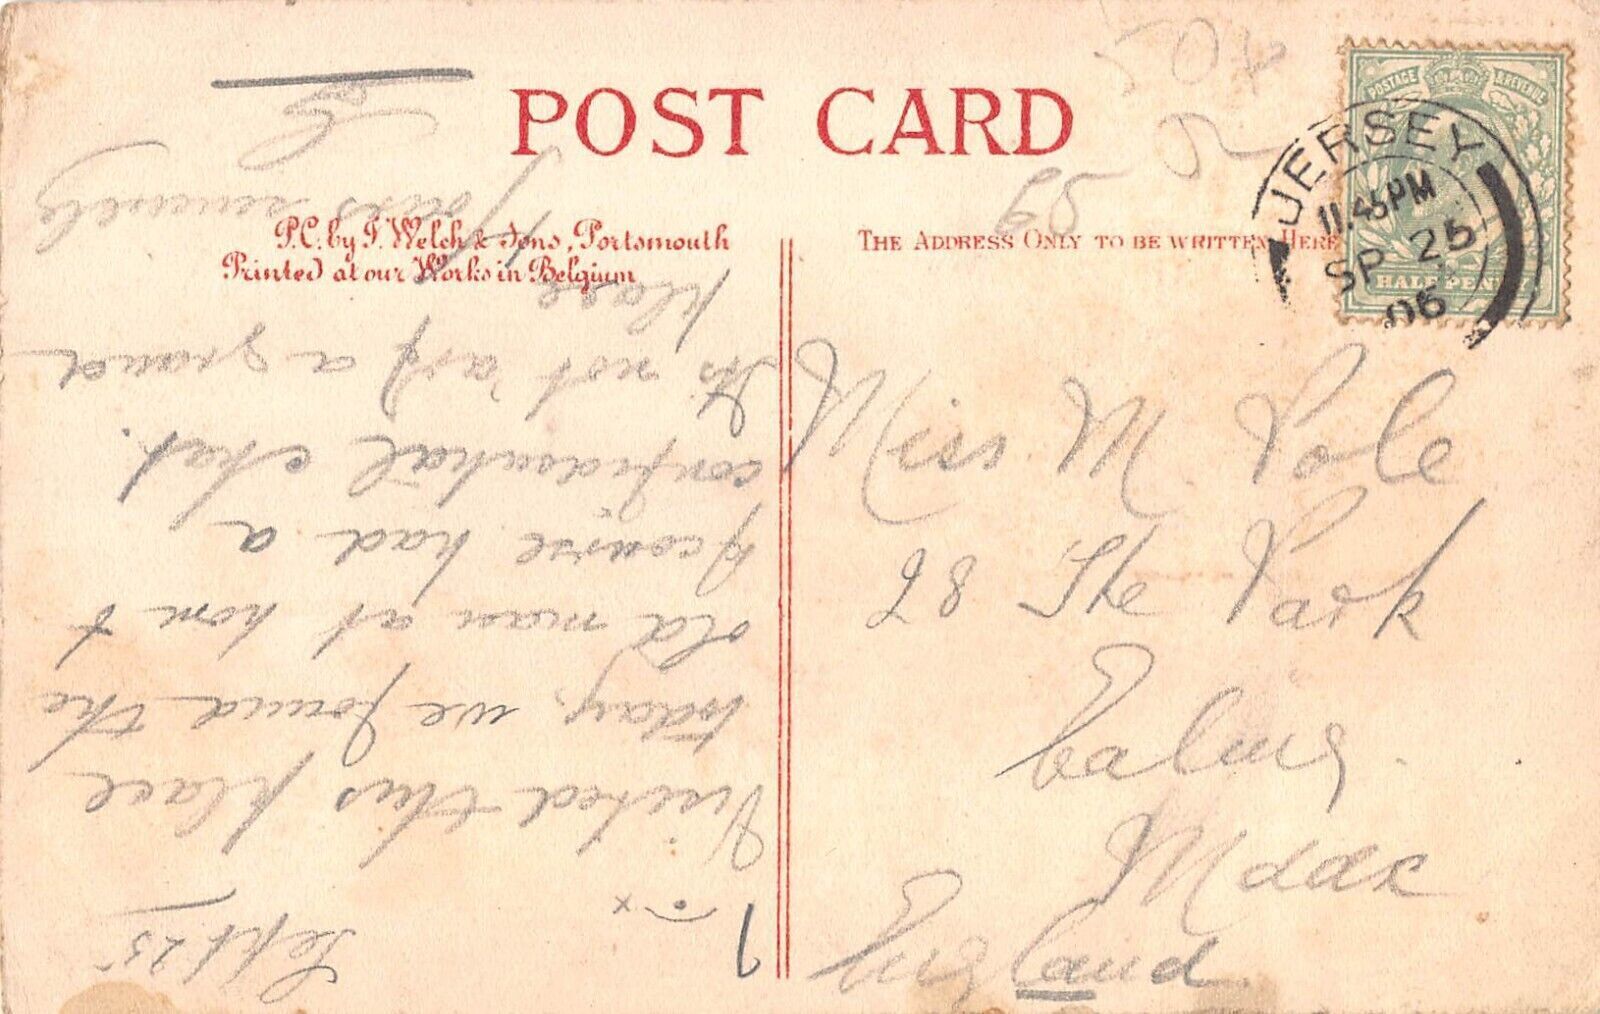 POST CARD
P.C. by F. Welch & Sons, Portsmouth
Printed at our Works in Belgium
THE ADDRESS ONLY TO BE WRITTEN HERE
POSTAGE & REVENUE
HALF PENNY
JERSEY
11.45PM
SP 25
06
Miss M. Pole
28 The Park
Ealing
Middx
England
Sept. 25
Visited this place
today, we found the
old man at home &
of course had a
confidential chat.
Its not a grand
place
Yours sincerely